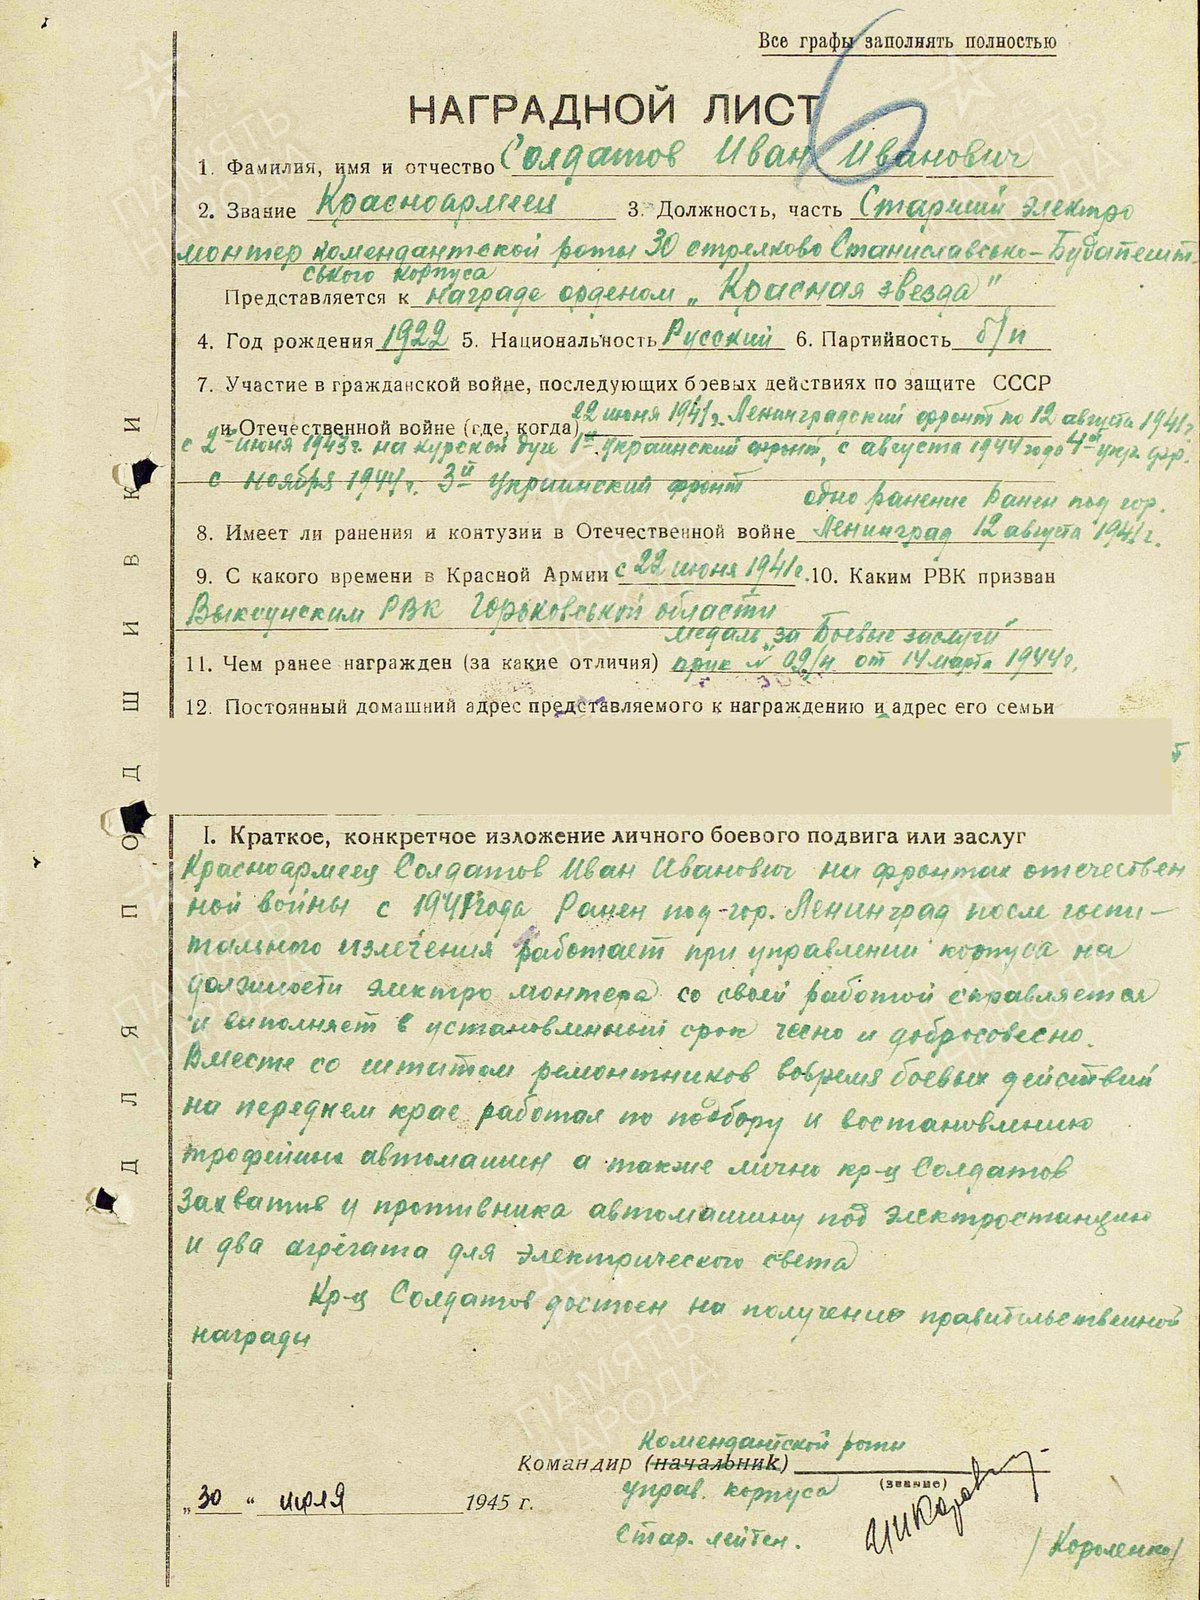 Все графы заполнять полностью
НАГРАДНОЙ ЛИСТ
6
1. Фамилия, имя и отчество Солдатов Иван Иванович
2. Звание Красноармеец 3. Должность, часть Старший электро
монтер комендантской роты 30 стрелково Станиславсько-Будапешт-
ського корпуса
Представляется к награде орденом „Красная звезда"
4. Год рождения 1922 5. Национальность Русский 6. Партийность б/п
7. Участие в гражданской войне, последующих боевых действиях по защите СССР
и Отечественной войне (где, когда) 22 июня 1941г. Ленинградский фронт по 12 августа 1941г.
с 2го июня 1943г. на курской дуге 1й украинский фронт, с августа 1944 года 4й укр. фр.
с ноября 1944г. 3й украинский фронт
одно ранение Ранен под гор.
8. Имеет ли ранения и контузии в Отечественной войне Ленинград 12 августа 1941г.
9. С какого времени в Красной Армии с 22 июня 1941г. 10. Каким РВК призван
Выксунским РВК Горьковськой области
медаль „за Боевые заслуги"
11. Чем ранее награжден (за какие отличия) прик № 09/н от 14 марта 1944г.
12. Постоянный домашний адрес представляемого к награждению и адрес его семьи
I. Краткое, конкретное изложение личного боевого подвига или заслуг
Красноармеец Солдатов Иван Иванович на фронтах отечествен
ной войны с 1941 года Ранен под гор. Ленинград после госпи-
тального излечения работает при управлении корпуса на
должности электро монтера со своей работой справляется
и выполняет в установленный срок чесно и добросовесно.
Вместе со штатом ремонтников вовремя боевых действий
на переднем крае работал по подбору и востановлению
трофейных автомашин а также лично кр-ц Солдатов
захватив у противника автомашину под электростанцию
и два агрегата для электрического света
Кр-ц Солдатов достоен на получению правительственной
награды
Комендантской роты
Командир (начальник)
(звание)
управ. корпуса
„30" июля 1945 г.
Стар. лейтен.
/Короленко/
ДЛЯ ПОДШИВКИ
ПАМЯТЬ НАРОДА